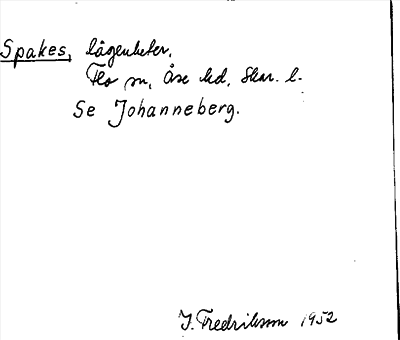 Spakes, lägenheter,
Flo sn, Åse hd, Skar. l.
Se Johanneberg.
J. Fredriksson 1952